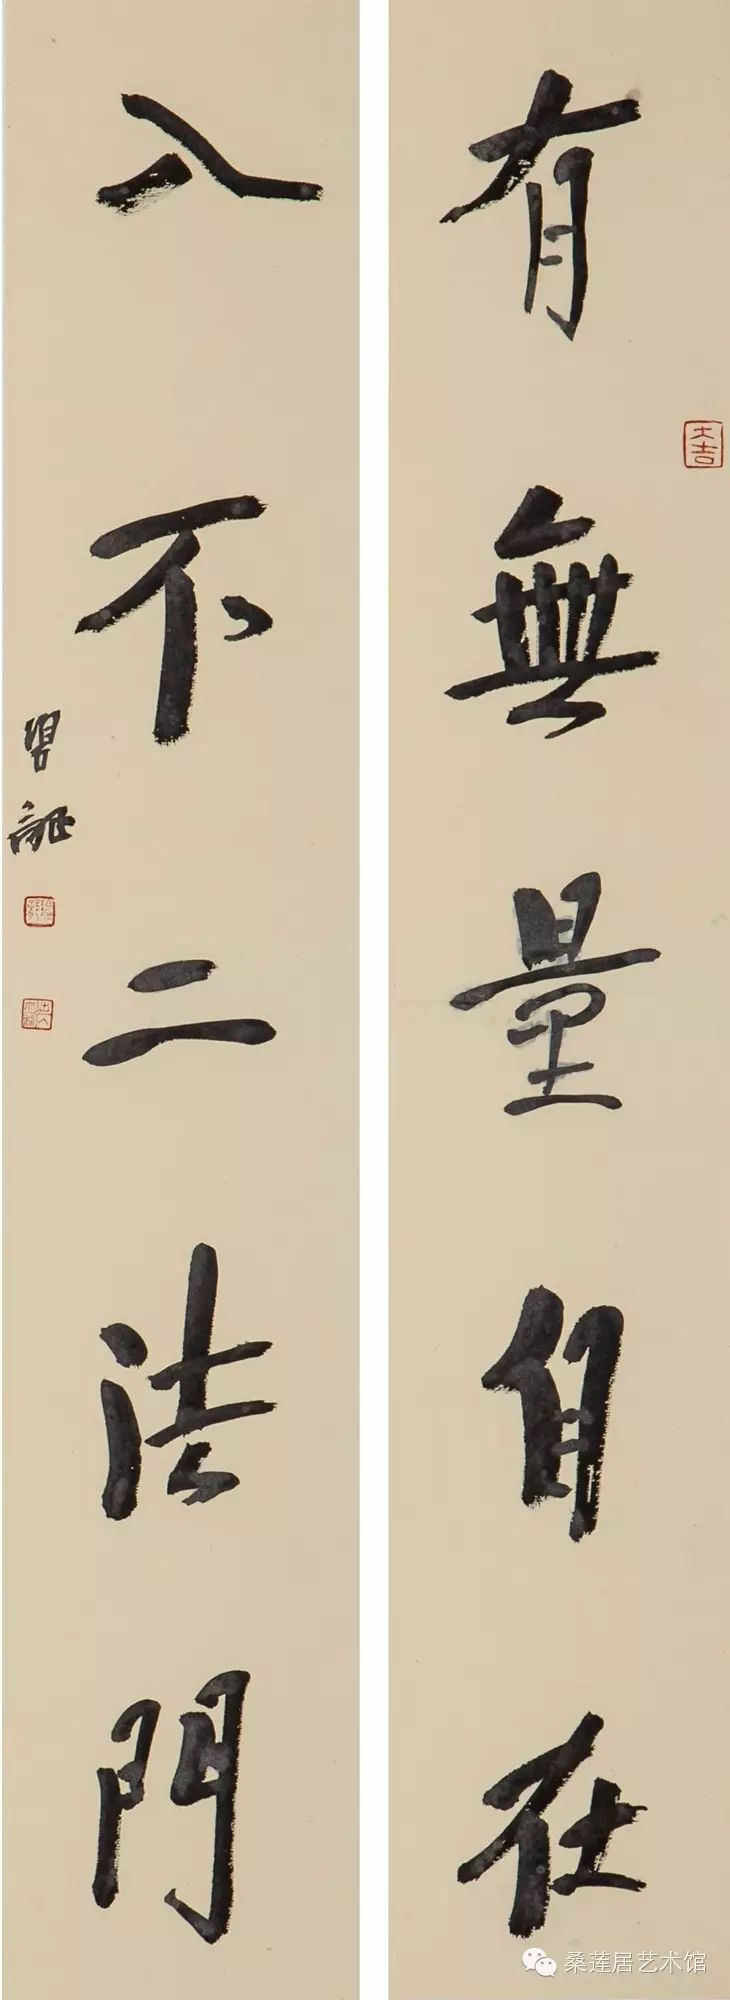 有無量自在
大吉
入不二法門
桑莲居艺术馆